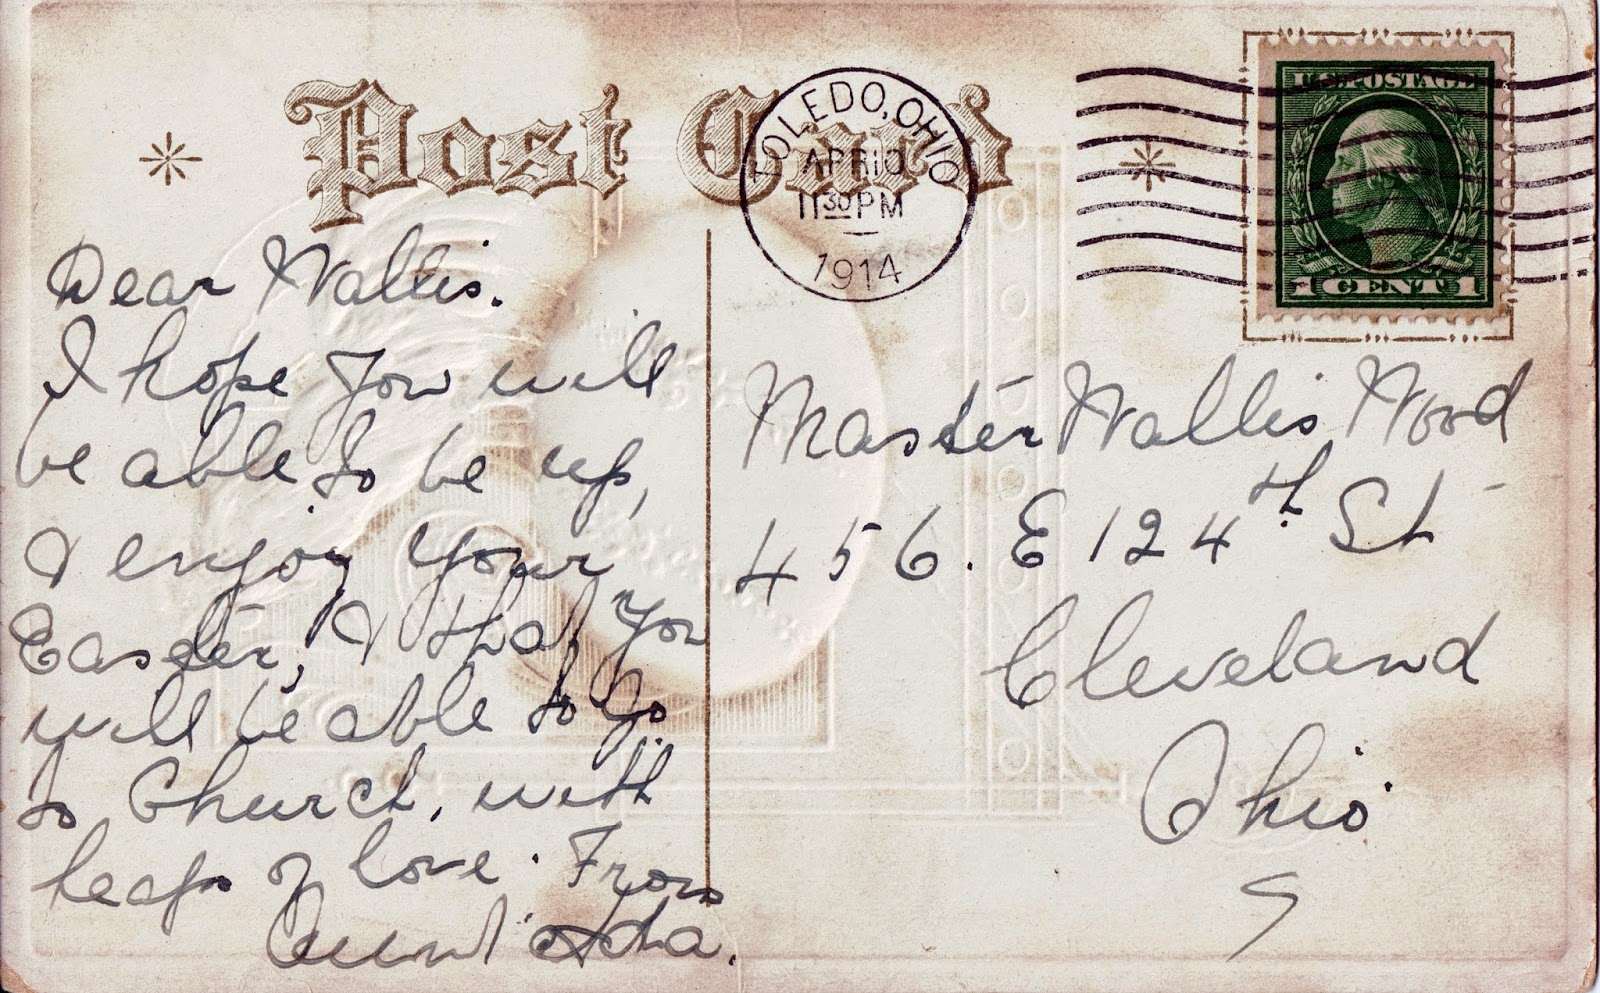 Post Card
TOLEDO, OHIO
APR 10
11 30 PM
1914
U.S. POSTAGE
1 CENT 1
Dear Wallis.
I hope you will
be able to be up,
& enjoy your
Easter, & that you
will be able to go
to Church, with
heaps of love. From
Aunt Ida.
Master Wallis Wood
456. E 124th St
Cleveland
Ohio